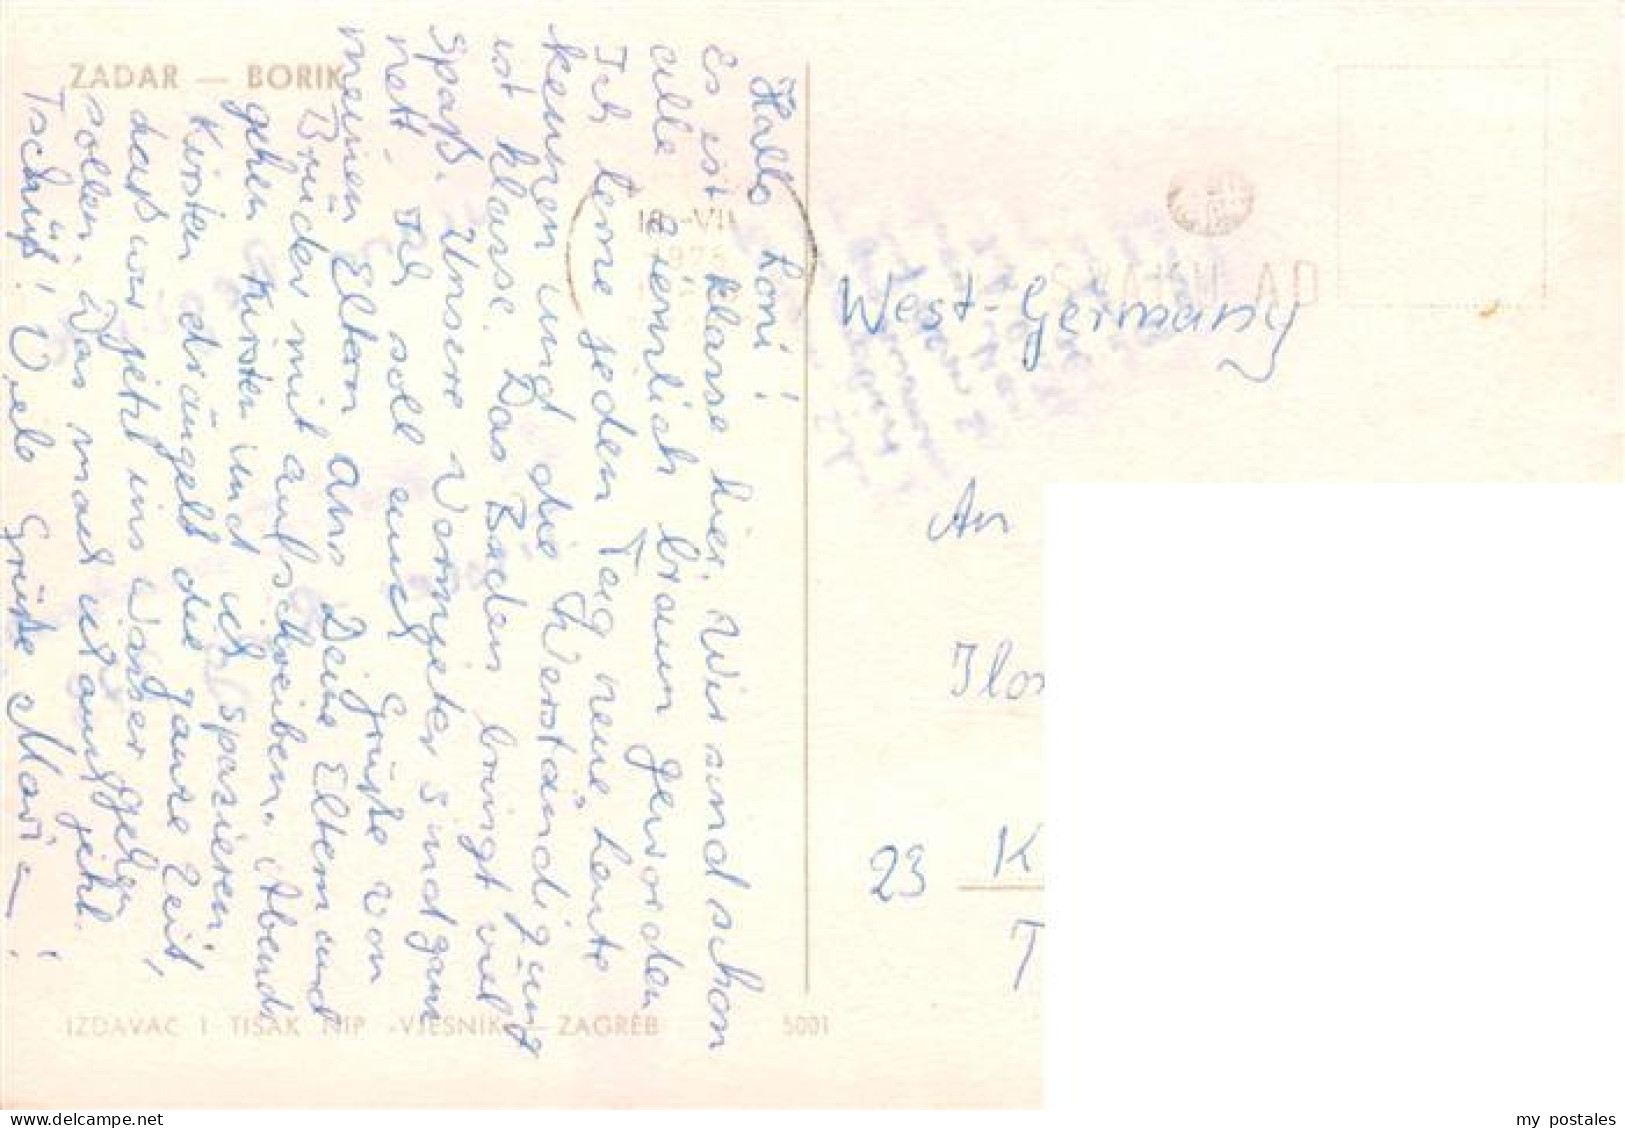 ZADAR — BORIK
Hallo Loni!
Es ist klasse hier. Wir sind schon
alle ziemlich braun geworden
Ich lerne jeden Tag neue Leute
kennen und die Verständigung
ist klasse. Das Baden bringt viel
Spaß. Unsere Vermieter sind ganz
nett. Ich soll euch Grüße von
meinen Eltern ans Deine Eltern und
Brüder mit aufschreiben. Abends
gehen Kirsten und ich spazieren.
Kirsten drängelt die ganze Zeit,
daß wir jetzt ins Wasser gehen
sollen. Das mach ich auch jetzt.
Tschüß! Viele Grüße
IZDAVAČ I TISAK NIP „VJESNIK" — ZAGREB
5001
18.-VII
West-Germany
An
23 K
T
my postales
www.delcampe.net